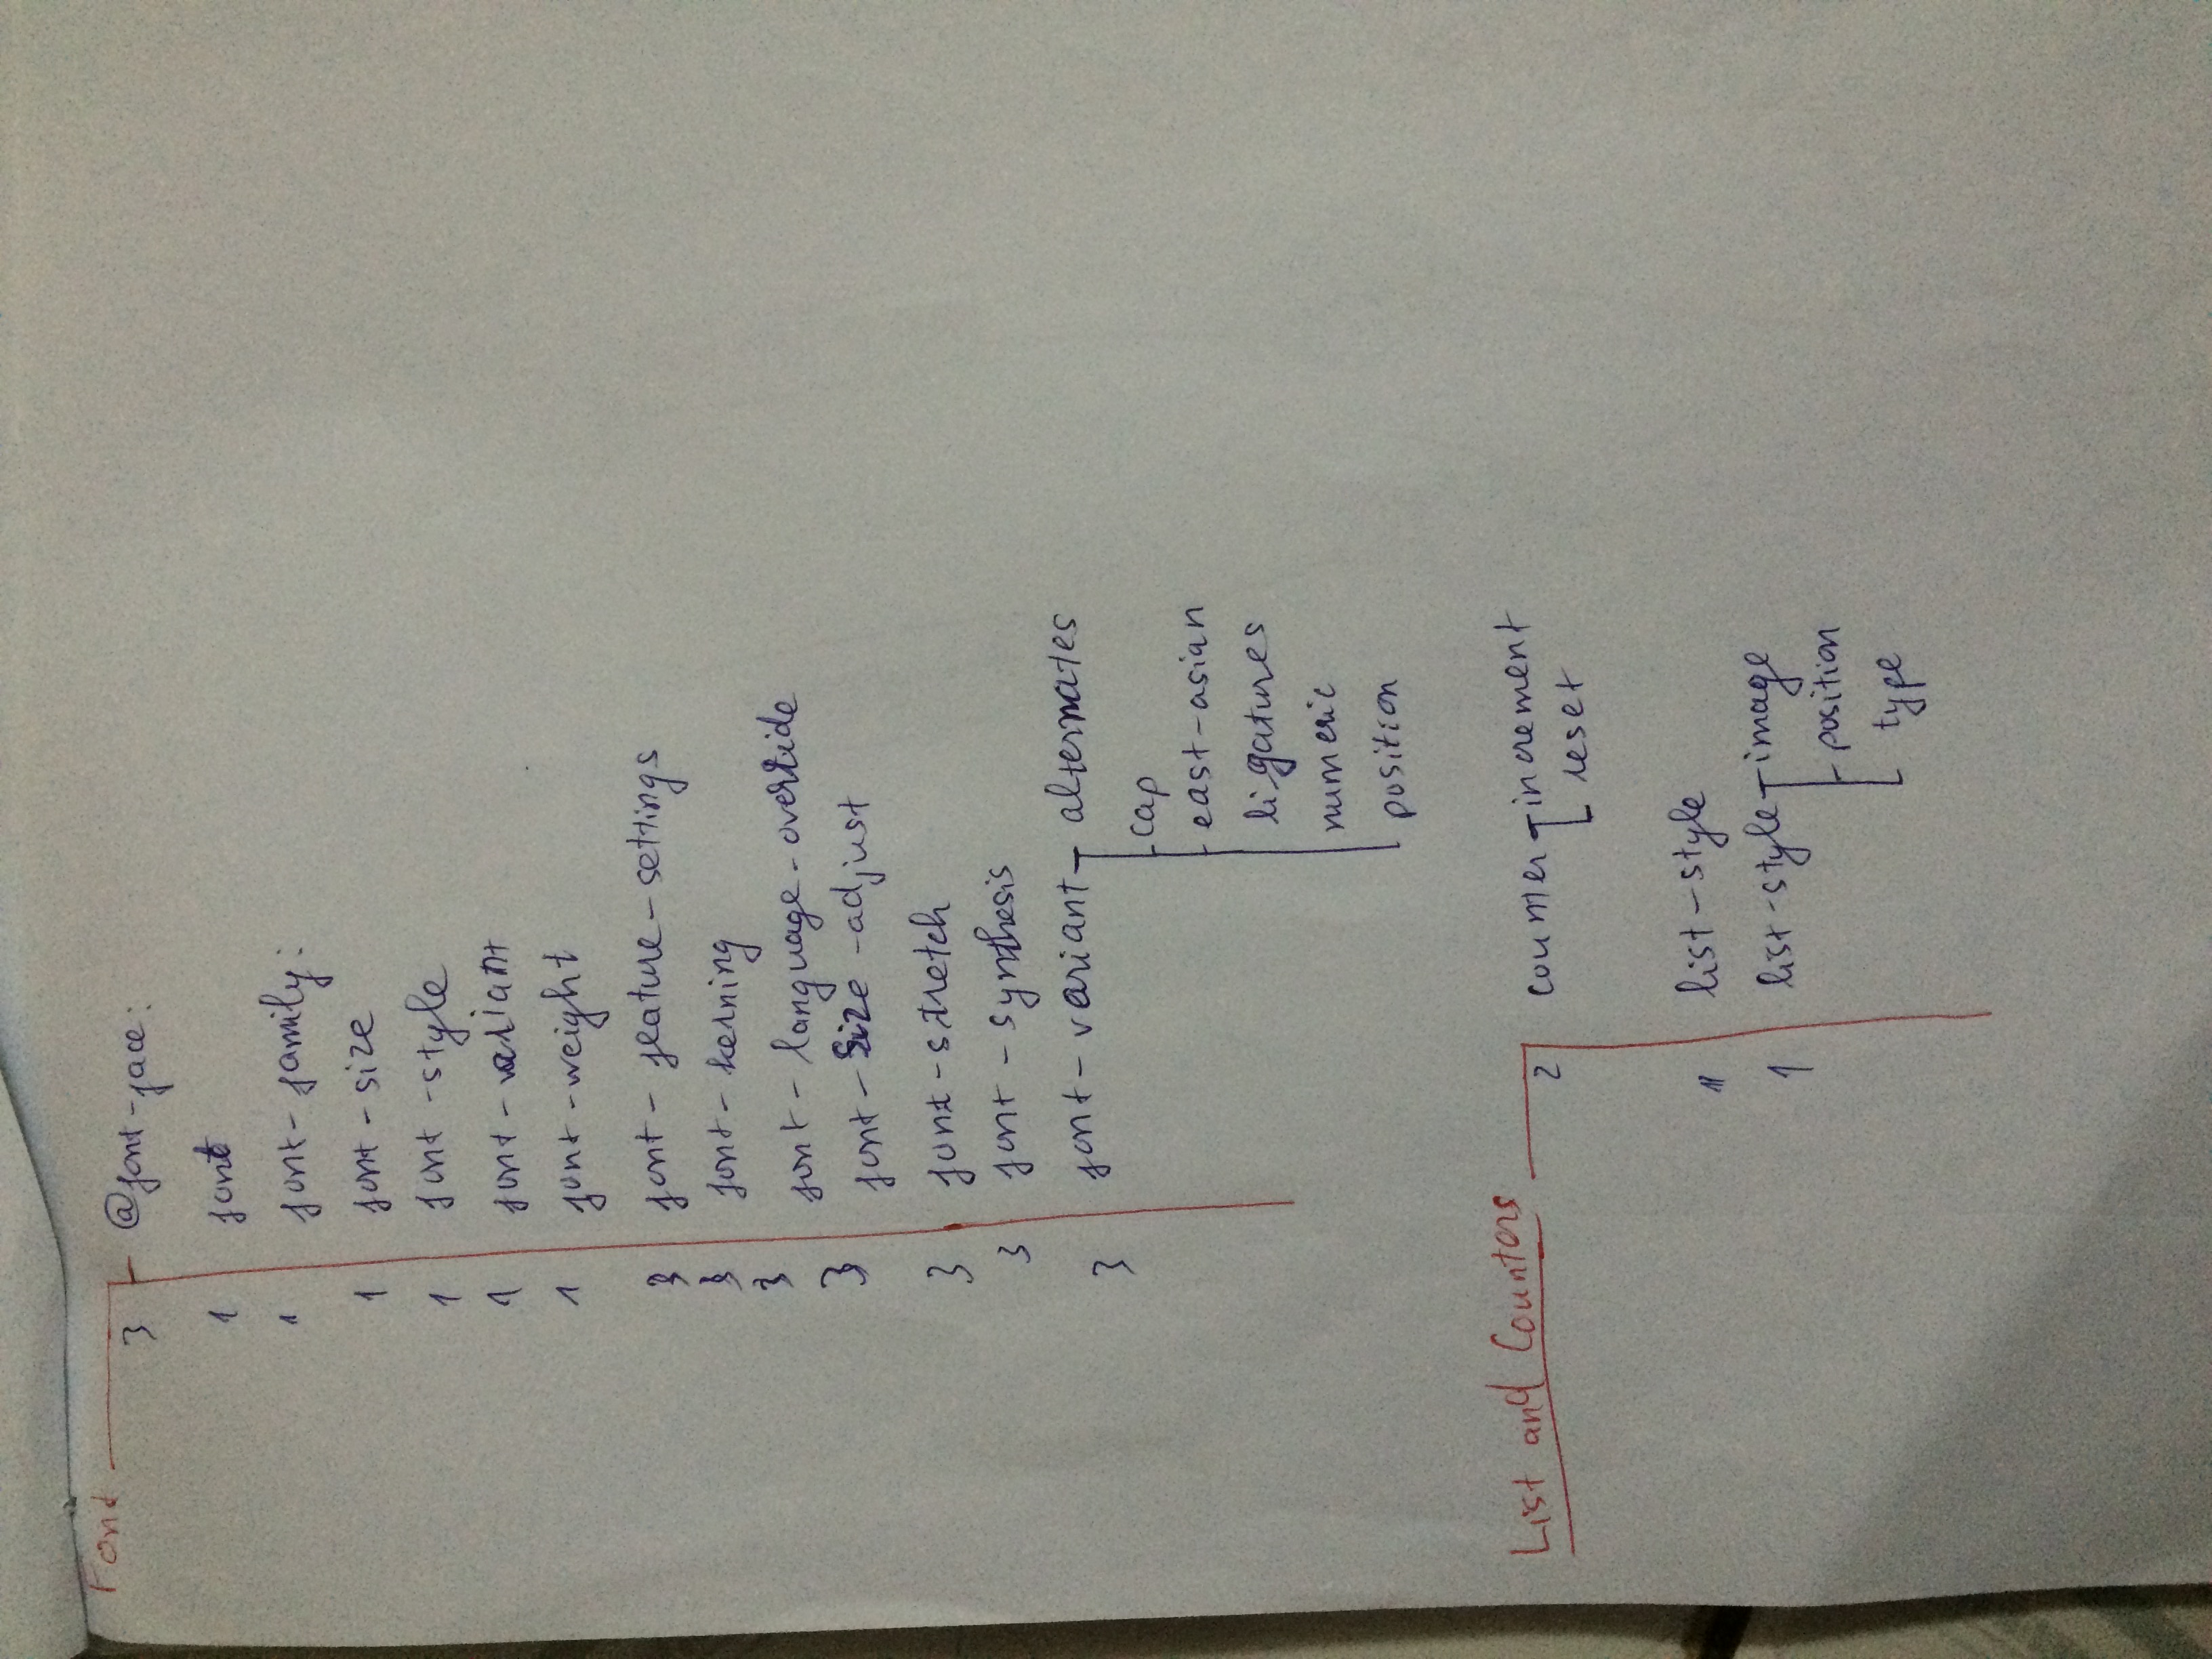 Font
3 @font-face:
1 font
1 font-family:
1 font-size
1 font-style
1 font-variant
1 font-weight
3 font-feature-settings
3 font-kerning
3 font-language-override
3 font-size-adjust
3 font-stretch
3 font-synthesis
3 font-variant-alternates
cap
east-asian
ligatures
numeric
position
List and Counters
2 counter-increment
reset
1 list-style
1 list-style-image
position
type